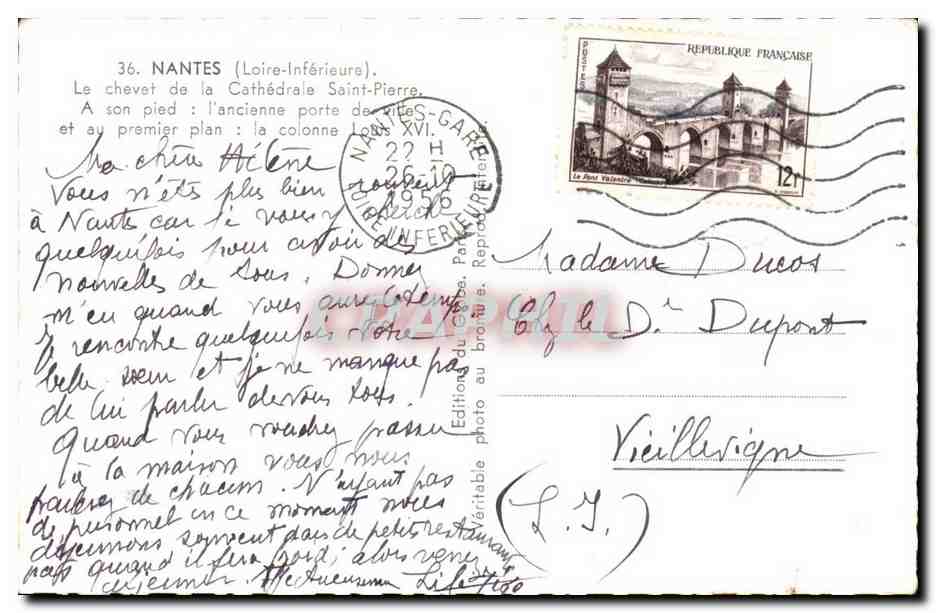 36. NANTES (Loire-Inférieure).
Le chevet de la Cathédrale Saint-Pierre.
A son pied : l'ancienne porte de ville
et au premier plan : la colonne Louis XVI.
Ma chère Hélène
Vous n'êts plus bien souvent
à Nants car je vous y cherche
quelquefois pour avoir des
nouvelles de tous. Donnez
m'en quand vous aurez le temps.
Je rencontre quelquefois votre
belle soeur et je ne manque pas
de lui parler de vous tous.
Quand vous voudrez passer
à la maison vous nous
parlerez de chacun. N'ayant pas
de personnel en ce moment nous
déjeunons souvent dans de petits restaurants
mais quand il fera froid, alors venez
déjeuner.
NANTES-GARE
22 H
26-10
1956
LOIRE INFERIEURE
Editions du Gabce. Paris
Véritable photo au bromure. Reproduction interdite.
POSTES
REPUBLIQUE FRANÇAISE
Le Pont Valentré
12F
CPAPHIL
Madame Ducos
Chez le Dr Dupont
Vieillevigne
(L. I.)